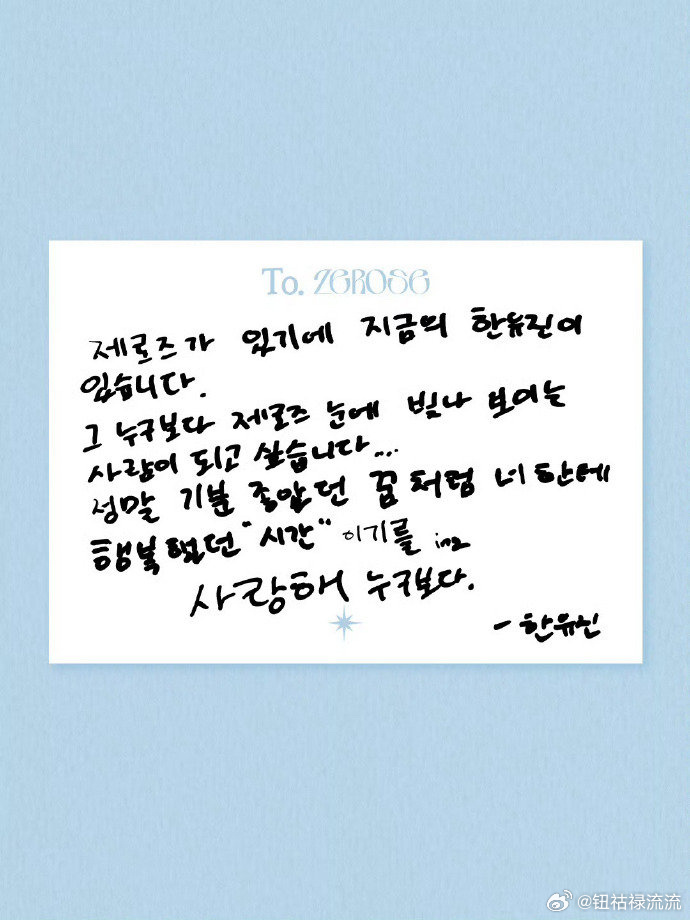 To. ZEROSE
제로즈가 있기에 지금의 한유진이
있습니다.
그 누구보다 제로즈 눈에 빛나 보이는
사람이 되고 싶습니다...
정말 기분 좋았던 꿈처럼 너한테
행복했던 "시간" 이기를
사랑해 누구보다.
- 한유진
@钮祜禄流流